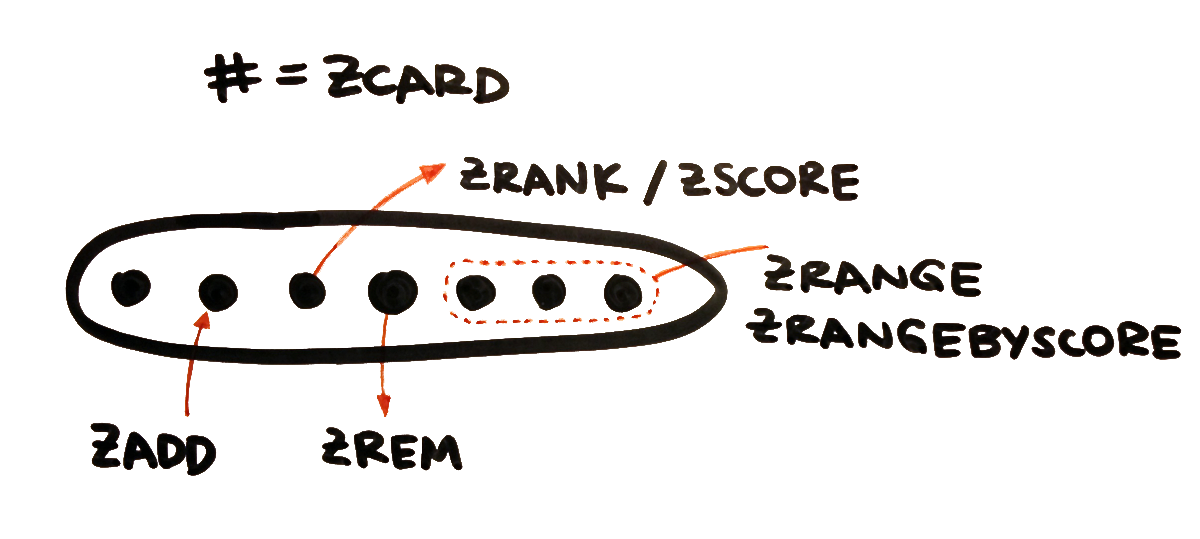 # = ZCARD
ZRANK / ZSCORE
ZRANGE
ZRANGEBYSCORE
ZADD
ZREM